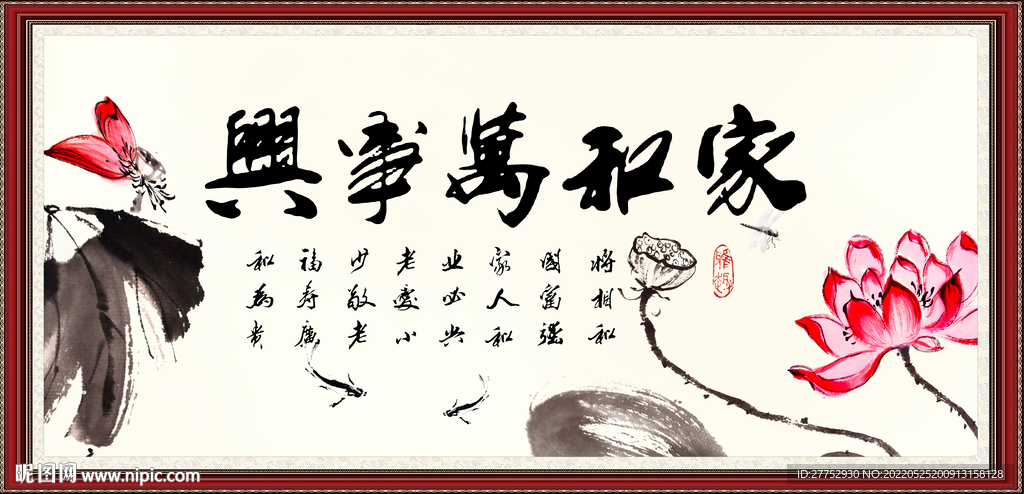 家和萬事興
将相和
國富強
家人和
业必兴
老愛小
少敬老
福寿廣
和为贵
昵图网 www.nipic.com
ID:27752930 NO:20220525200913158128